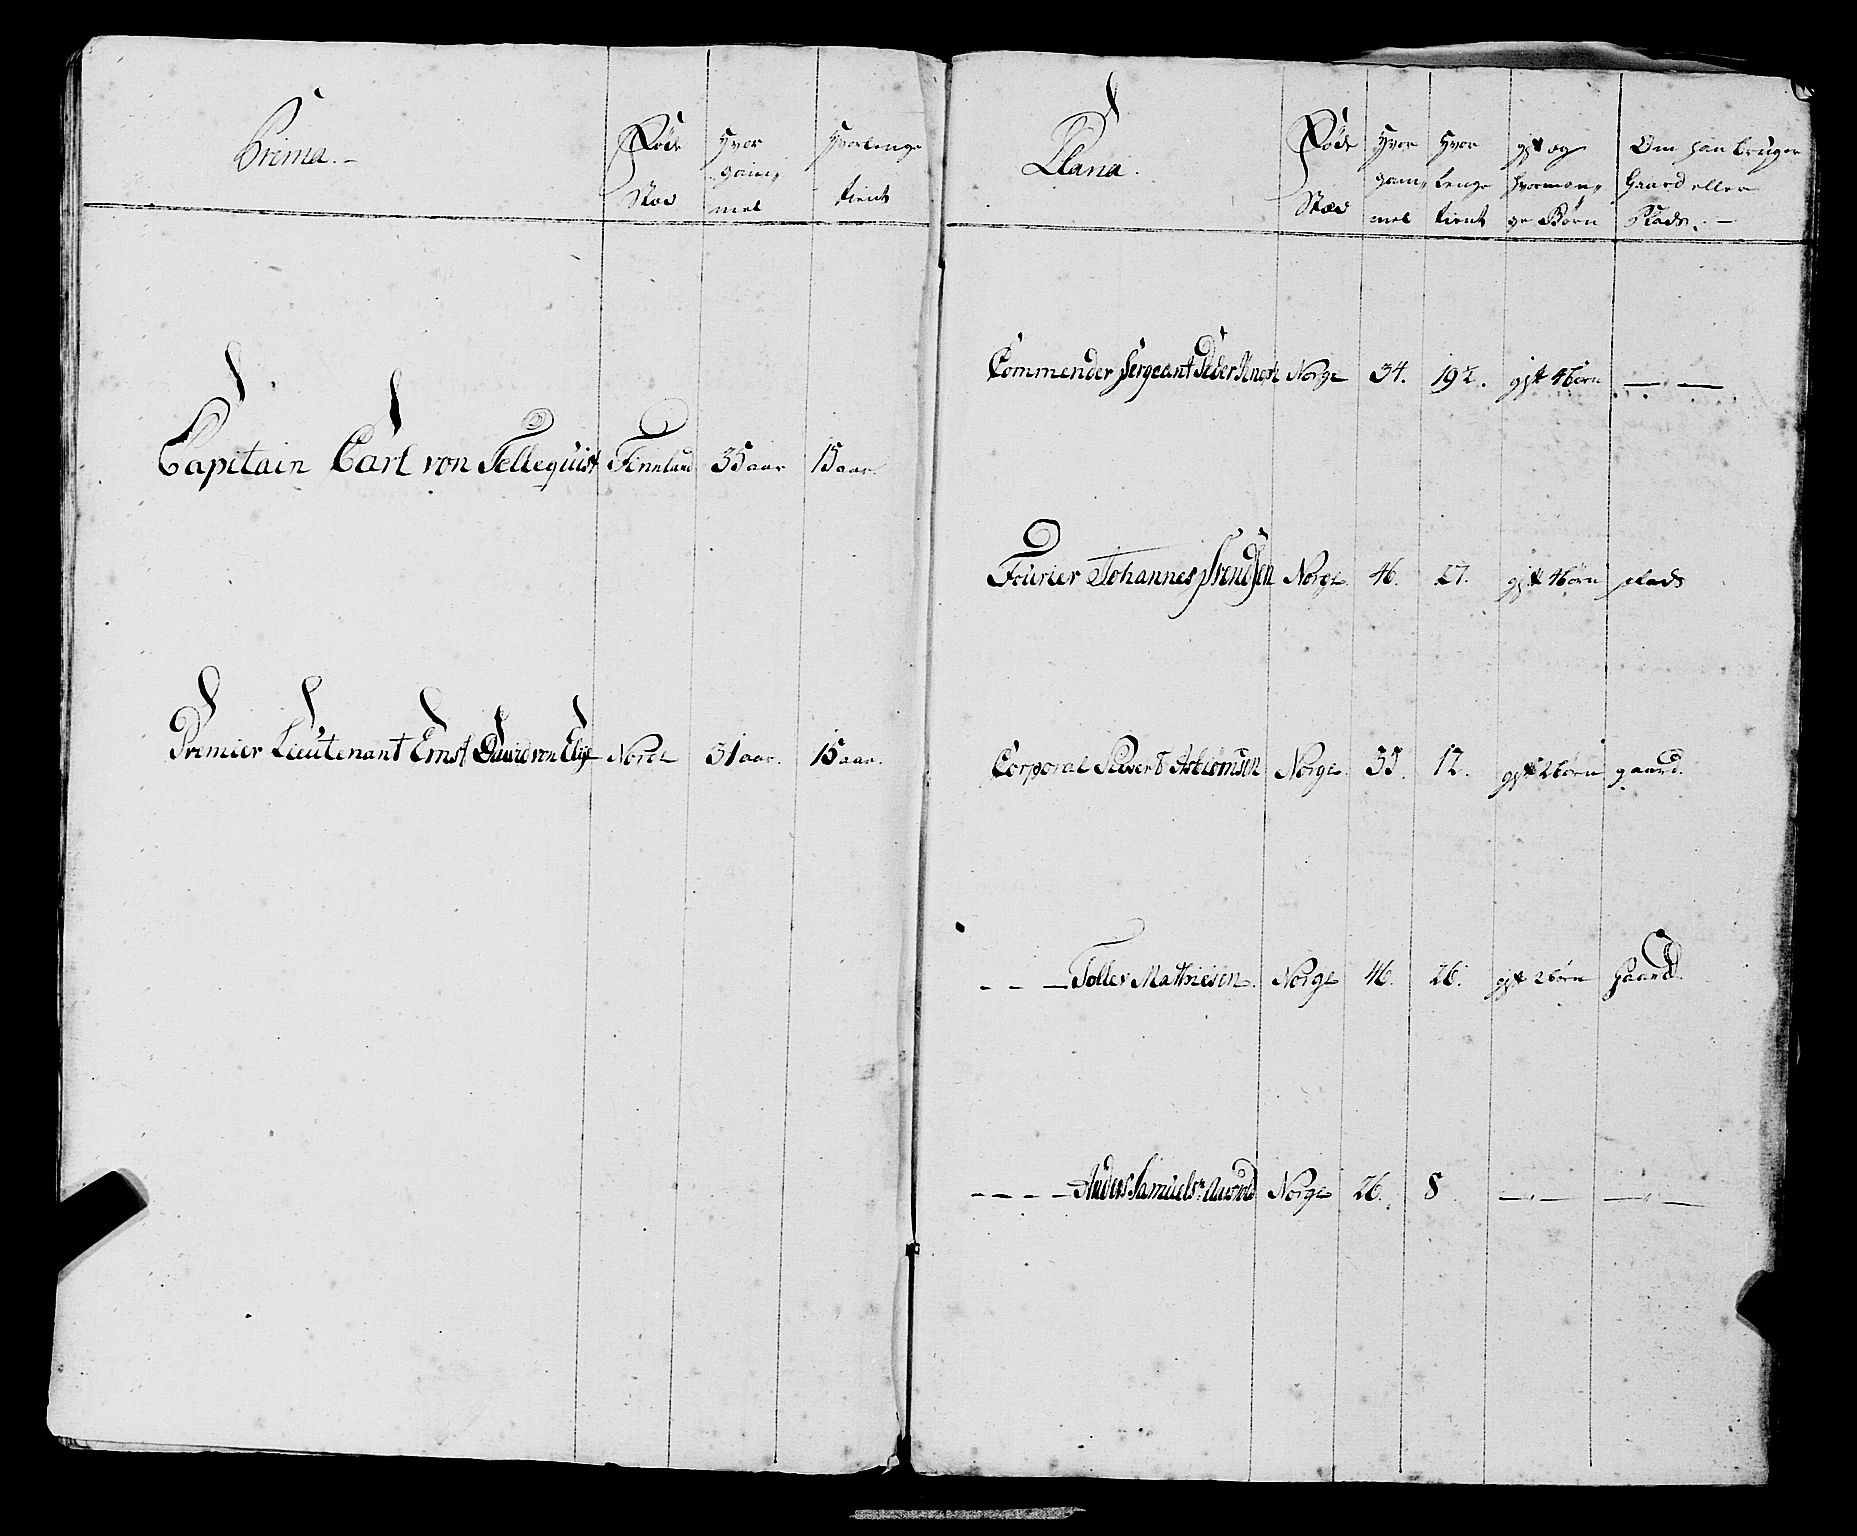 Prima.
Føde Stæd
Hvor gam, mel
Hvorlenge tient
Capitain Carl von Tellequist Finnland 35 aar 15 aar.
Premier Lieutenant Ernst David von Norge 31 aar. 15 aar.
Plana.
Føde Stæd
Hvor gam, mel
Hvor lenge tient
gift og hvorman, ge Børn
Om han bruger Gaard eller Plads.
Commender Sergeant Peder Norge 34. 19½. gift 4 børn — —
Fourier Johannes Svendsen Norge. 46. 27. gift 4 børn plads
Corporal Sivert Asbiörnsen Norge. 35. 12. gift 2 børn gaard.
- - — Toller Mathiesen. Norge 46. 26. gift 2 børn gaard.
- - - - Anders Samuels: Norge 26. 8 — —